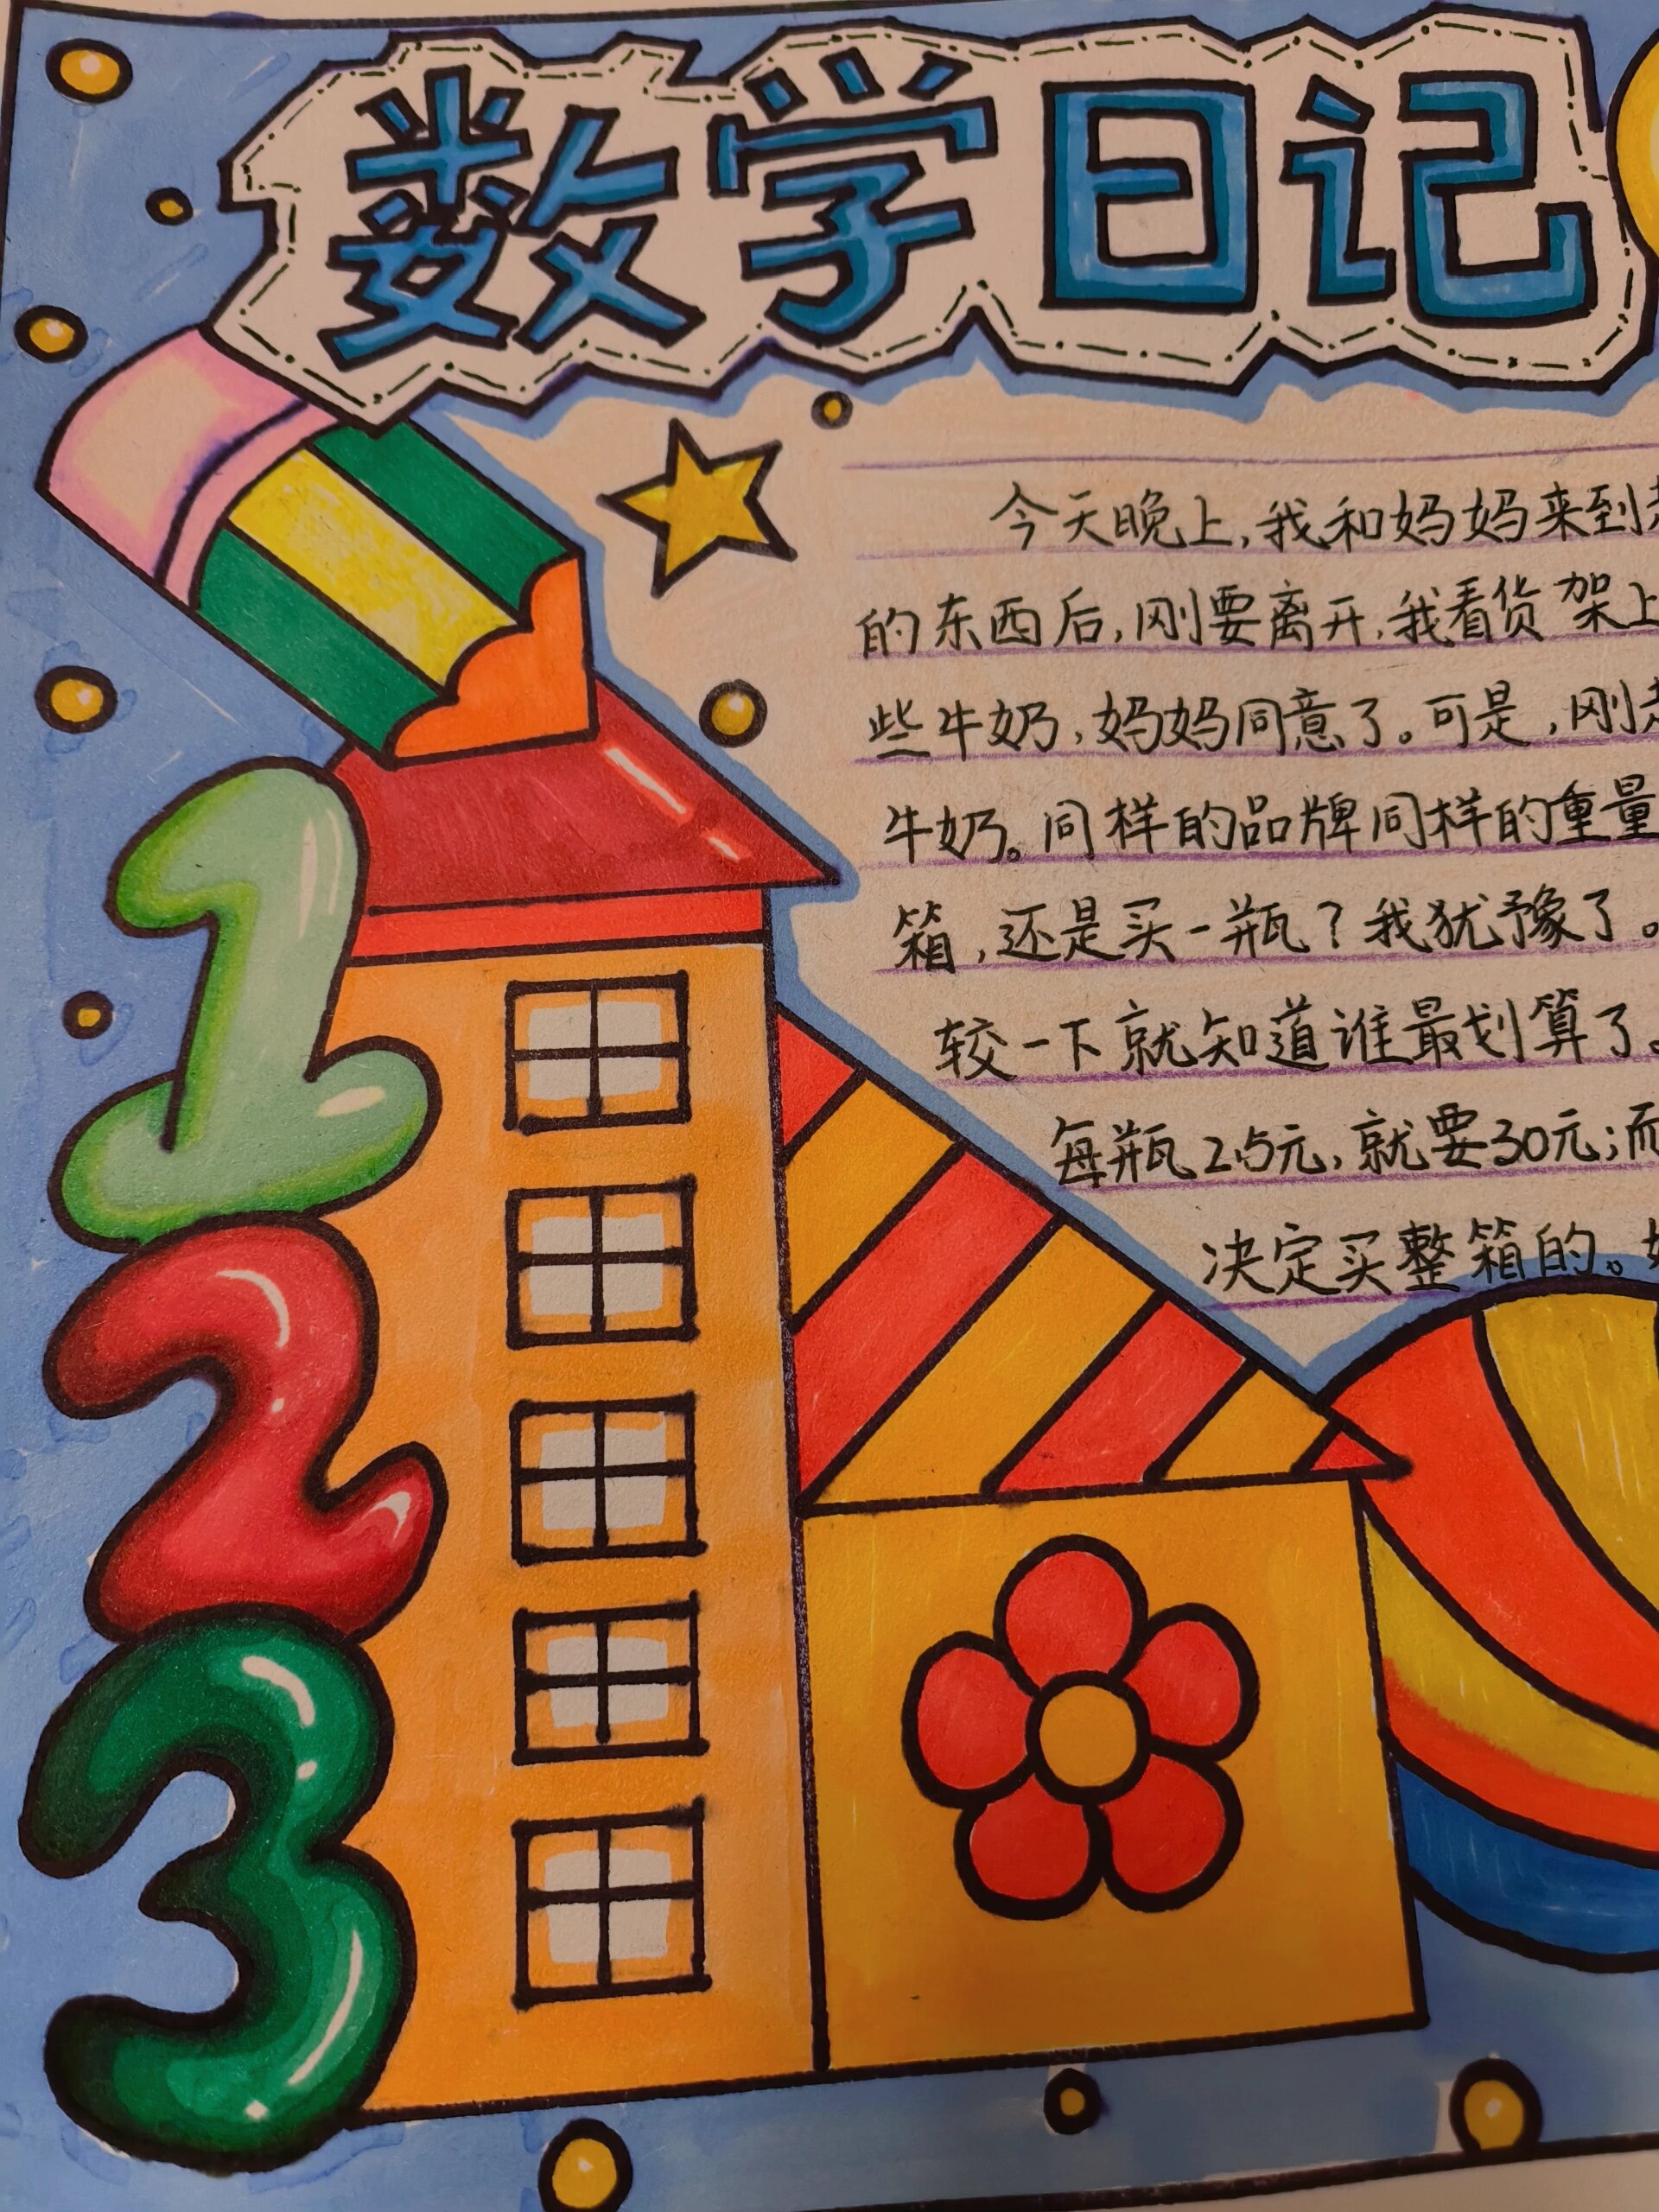 数学日记
今天晚上,我和妈妈来到
的东西后,刚要离开,我看货架上
些牛奶,妈妈同意了。可是,刚
牛奶。同样的品牌同样的重量
箱,还是买一瓶?我犹豫了。
较一下就知道谁最划算了。
每瓶2.5元,就要30元;而
决定买整箱的。
1
2
3